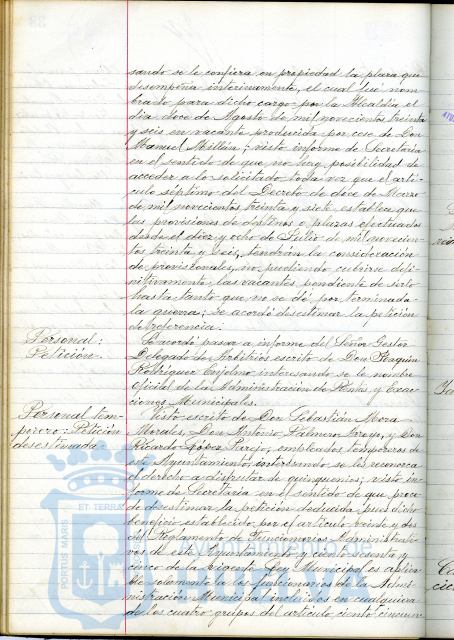 sando se le confiera en propiedad la plaza que
desempeña interinamente, el cual fué nom-
brado para dicho cargo por la Alcaldía el
día doce de Agosto de mil novecientos treinta
y seis en vacante producida por cese de Don
Manuel Millán; visto informe de Secretaría
en el sentido de que no hay posibilidad de
acceder a lo solicitado toda vez que el artí-
culo séptimo del Decreto de doce de Marzo
de mil novecientos treinta y siete establece que
las provisiones de destinos o plazas efectuadas
desde el diez y ocho de Julio de mil novecien-
tos treinta y seis, tendrán la consideración
de provisionales, no pudiendo cubrirse defi-
nitivamente las vacantes pendiente de serlo
hasta tanto que no se dé por terminada
la guerra; Se acordó desestimar la petición
de referencia.
Personal:
Petición.
Se acordó pasar a informe del Señor Gestor
Delegado de Arbitrios escrito de Don Joaquín
Rodríguez interesando se le nombre
Oficial de la Administración de Rentas y Exac-
ciones Municipales.
Personal tem-
porero: Petición
desestimada
Visto escrito de Don Sebastián Mora
Morales, Don Antonio Palmero Arroyo, y Don
Ricardo López Parejo, empleados temporeros de
este Ayuntamiento, interesando se les reconozca
el derecho a disfrutar de quinquenios; visto in-
forme de Secretaría en el sentido de que proce-
de desestimar la petición deducida, pues dicho
beneficio establecido por el artículo veinte y dos
del Reglamento de Funcionarios Administrati-
vos de este Ayuntamiento y ciento sesenta y
cinco de la vigente Ley Municipal es aplica-
ble solamente a los funcionarios de la Admi-
nistración Municipal incluidos en cualquiera
de los cuatro grupos del artículo ciento cincuen
PORTUS MARIS
ET TERRA
Ayuntamiento de